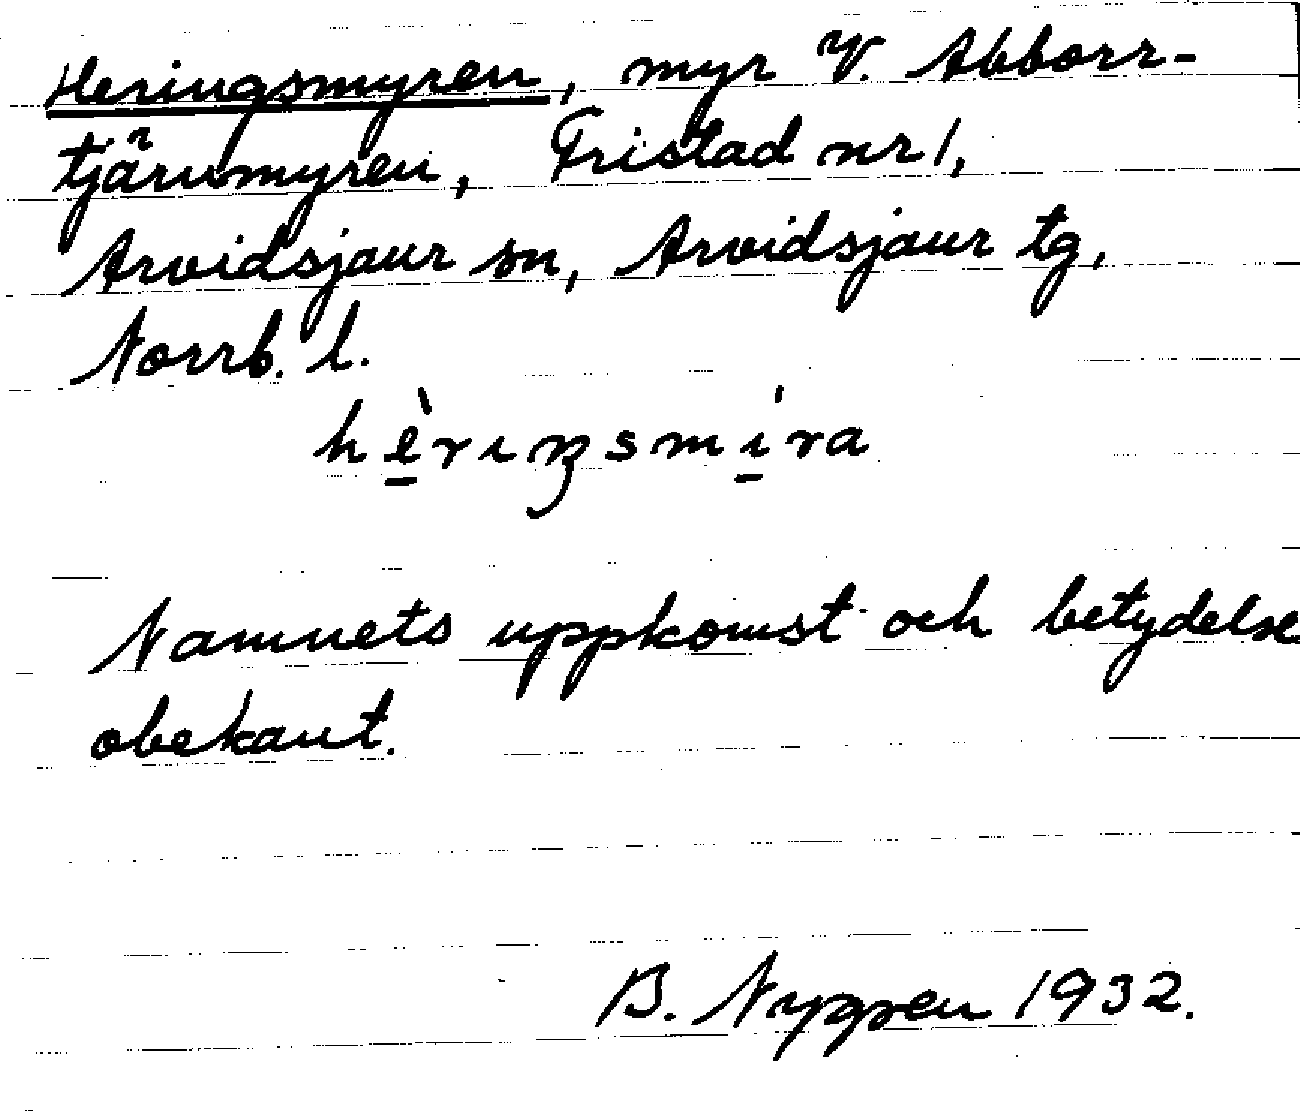 Heringsmyren, myr V. Abborr-
tjärnmyren, Fristad nr 1,
Arvidsjaur sn, Arvidsjaur tg,
Norrb. l.
hè̱rıŋsmí̱ra
Namnets uppkomst och betydelse
obekant.
B. Nygren 1932.